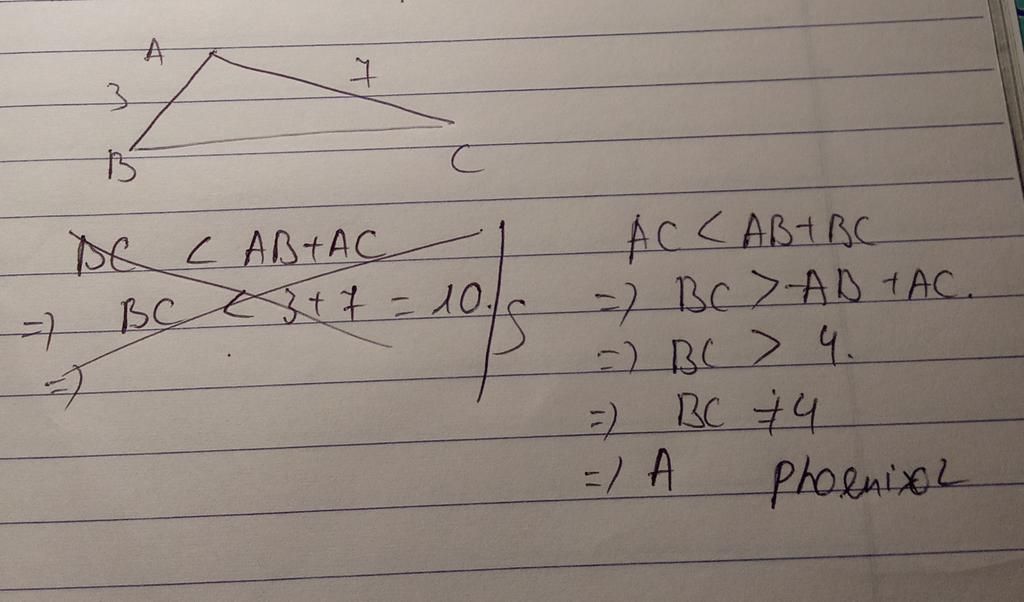 A
7
3
B
C
BC < AB+AC
=) BC < 3+7 = 10.
=)
AC < AB+BC
=) BC > -AB +AC.
=) BC > 4.
=) BC ≠ 4
=) A phoenixol